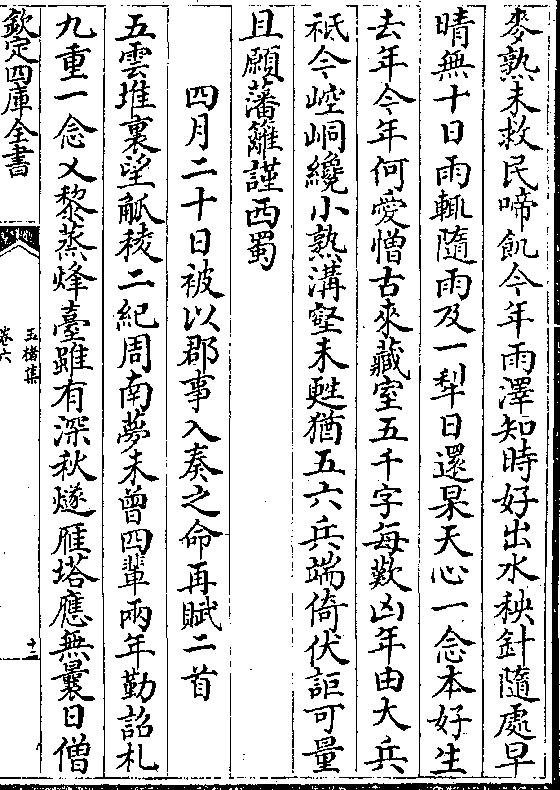 麥熟未救民啼飢今年雨澤知時好出水秧針隨處早
晴無十日雨輒隨雨及一犁日還杲天心一念本好生
去年今年何愛憎古來藏室五千字每歎凶年由大兵
祇今崆峒纔小熟溝壑未甦猶五六兵端倚伏詎可量
且願藩籬謹西蜀
四月二十日被以郡事入奏之命再賦二首
五雲堆裏望觚稜二紀周南夢未曾四輩兩年勤詔札
九重一念乂黎蒸烽臺雖有深秋燧雁塔應無曩日僧
欽定四庫全書
玉楮集
卷六
十一